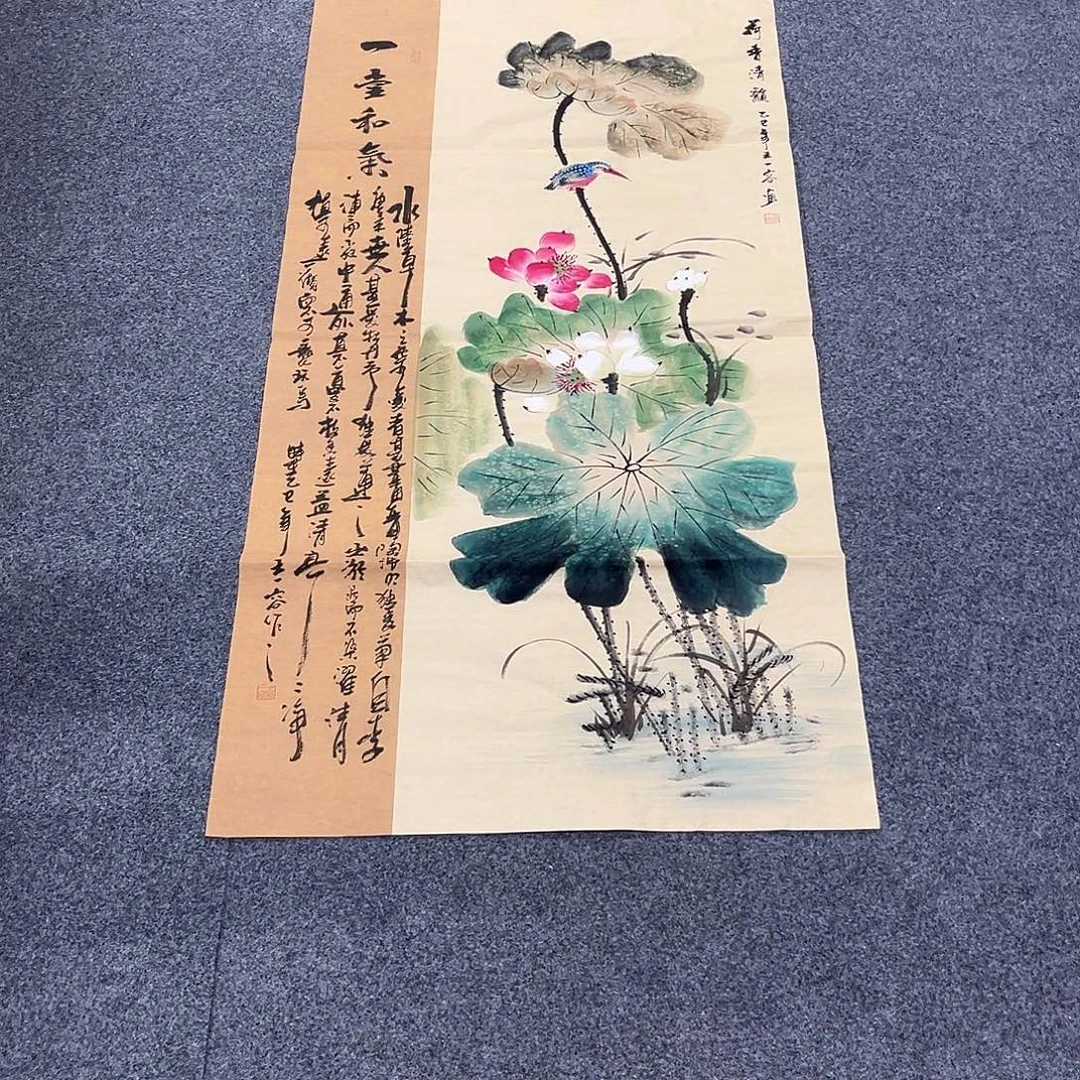 荷香清韻 乙巳年王一容畫
和氣
水陸草木之華可愛者甚蕃晉陶淵明獨愛菊自李
唐來世人甚愛牡丹予獨愛蓮之出淤泥而不染濯清
漣而不妖中通外直不枝香遠益清亭亭淨
植可遠觀不可褻玩焉
時在乙巳年王一容作之